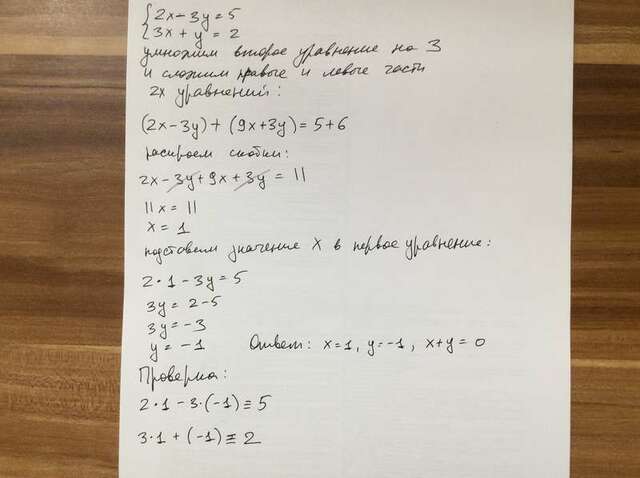 { 2x - 3y = 5
{ 3x + y = 2
умножим второе уравнение на 3
и сложим правые и левые части
2х уравнений:
(2x-3y) + (9x+3y) = 5+6
раскроем скобки:
2x - 3y + 9x + 3y = 11
11x = 11
x = 1
подставим значение x в первое уравнение:
2·1 - 3y = 5
3y = 2-5
3y = -3
y = -1 Ответ: x=1, y=-1, x+y=0
Проверка:
2·1 - 3·(-1) ≡ 5
3·1 + (-1) ≡ 2